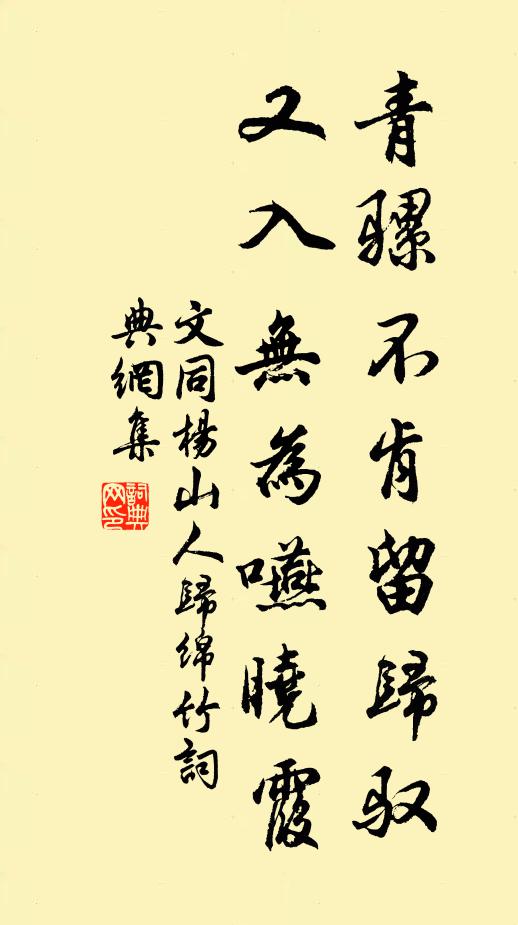 青騾不肯留歸馭
又入無為嚥曉霞
文同楊山人歸綿竹詞
典網集
詞典
网印